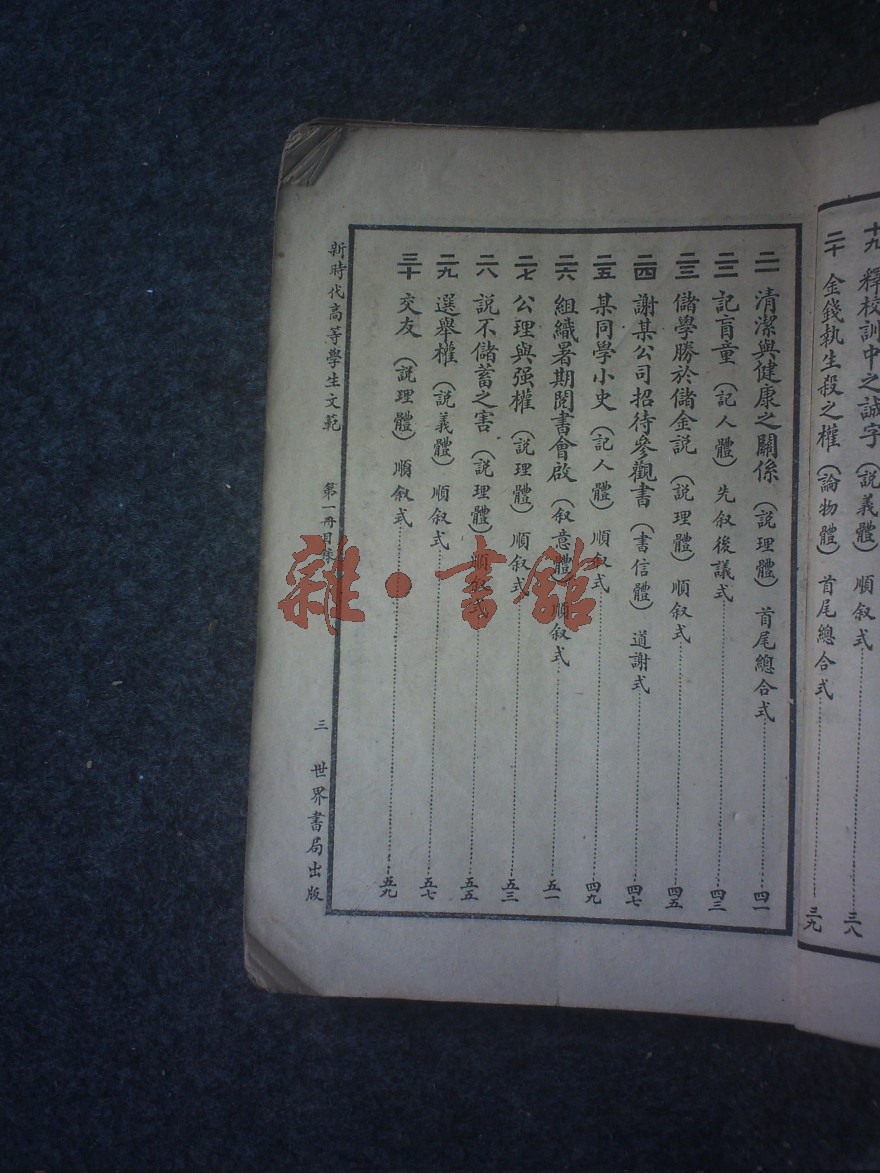 十九 釋校訓中之誠字（說義體）順叙式 三八
二十 金錢執生殺之權（論物體）首尾總合式 三九
二一 清潔與健康之關係（說理體）首尾總合式 四一
二二 記盲童（記人體）先叙後議式 四三
二三 儲學勝於儲金說（說理體）順叙式 四五
二四 謝某公司招待參觀書（書信體）道謝式 四七
二五 某同學小史（記人體）順叙式 四九
二六 組織暑期閱書會啟（叙意體）順叙式 五一
二七 公理與强權（說理體）順叙式 五三
二八 說不儲蓄之害（說理體）順叙式 五五
二九 選舉權（說義體）順叙式 五七
三十 交友（說理體）順叙式 五九
新時代高等學生文範 第一冊目錄 三 世界書局出版
雜·書館